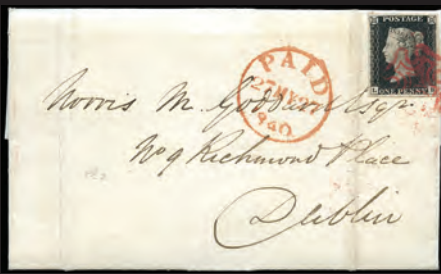 POSTAGE
ONE PENNY
PAID
1840
Norris M. Goddard Esqr
No 9 Richmond Place
Dublin